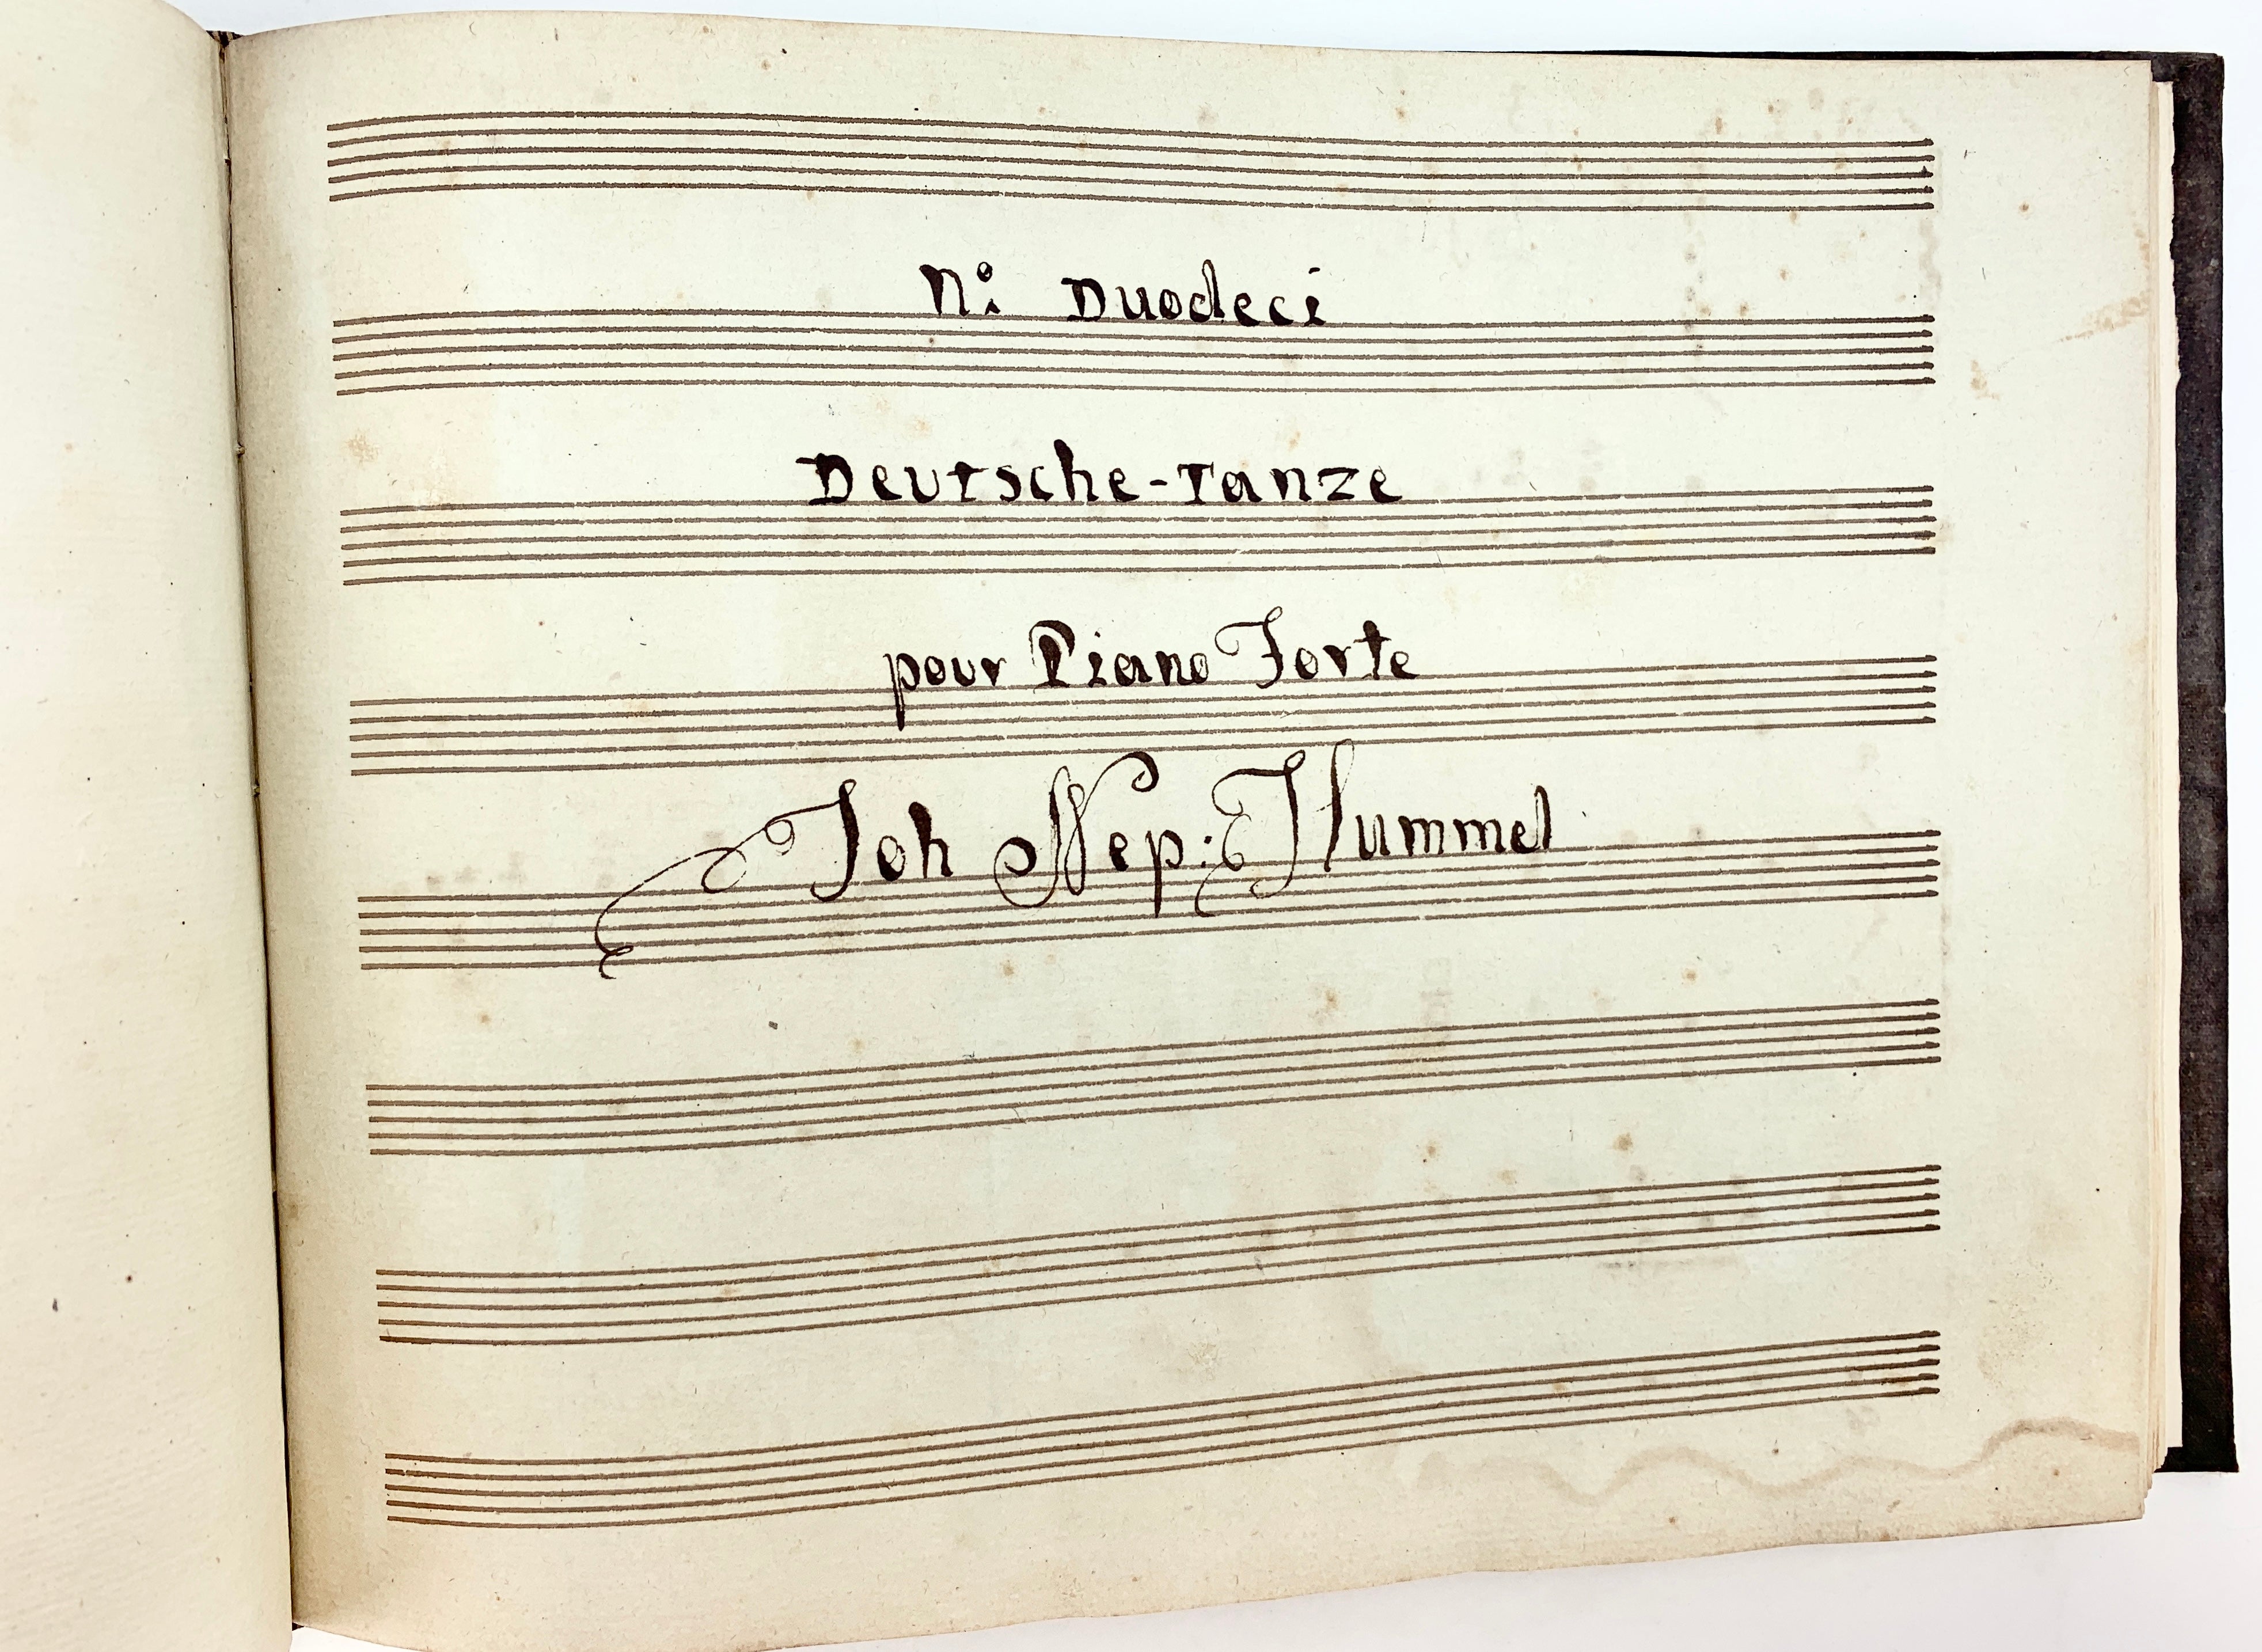 No: Duodeci
Deutsche-Tanze
pour Piano Forte
Joh Nep: Hummel